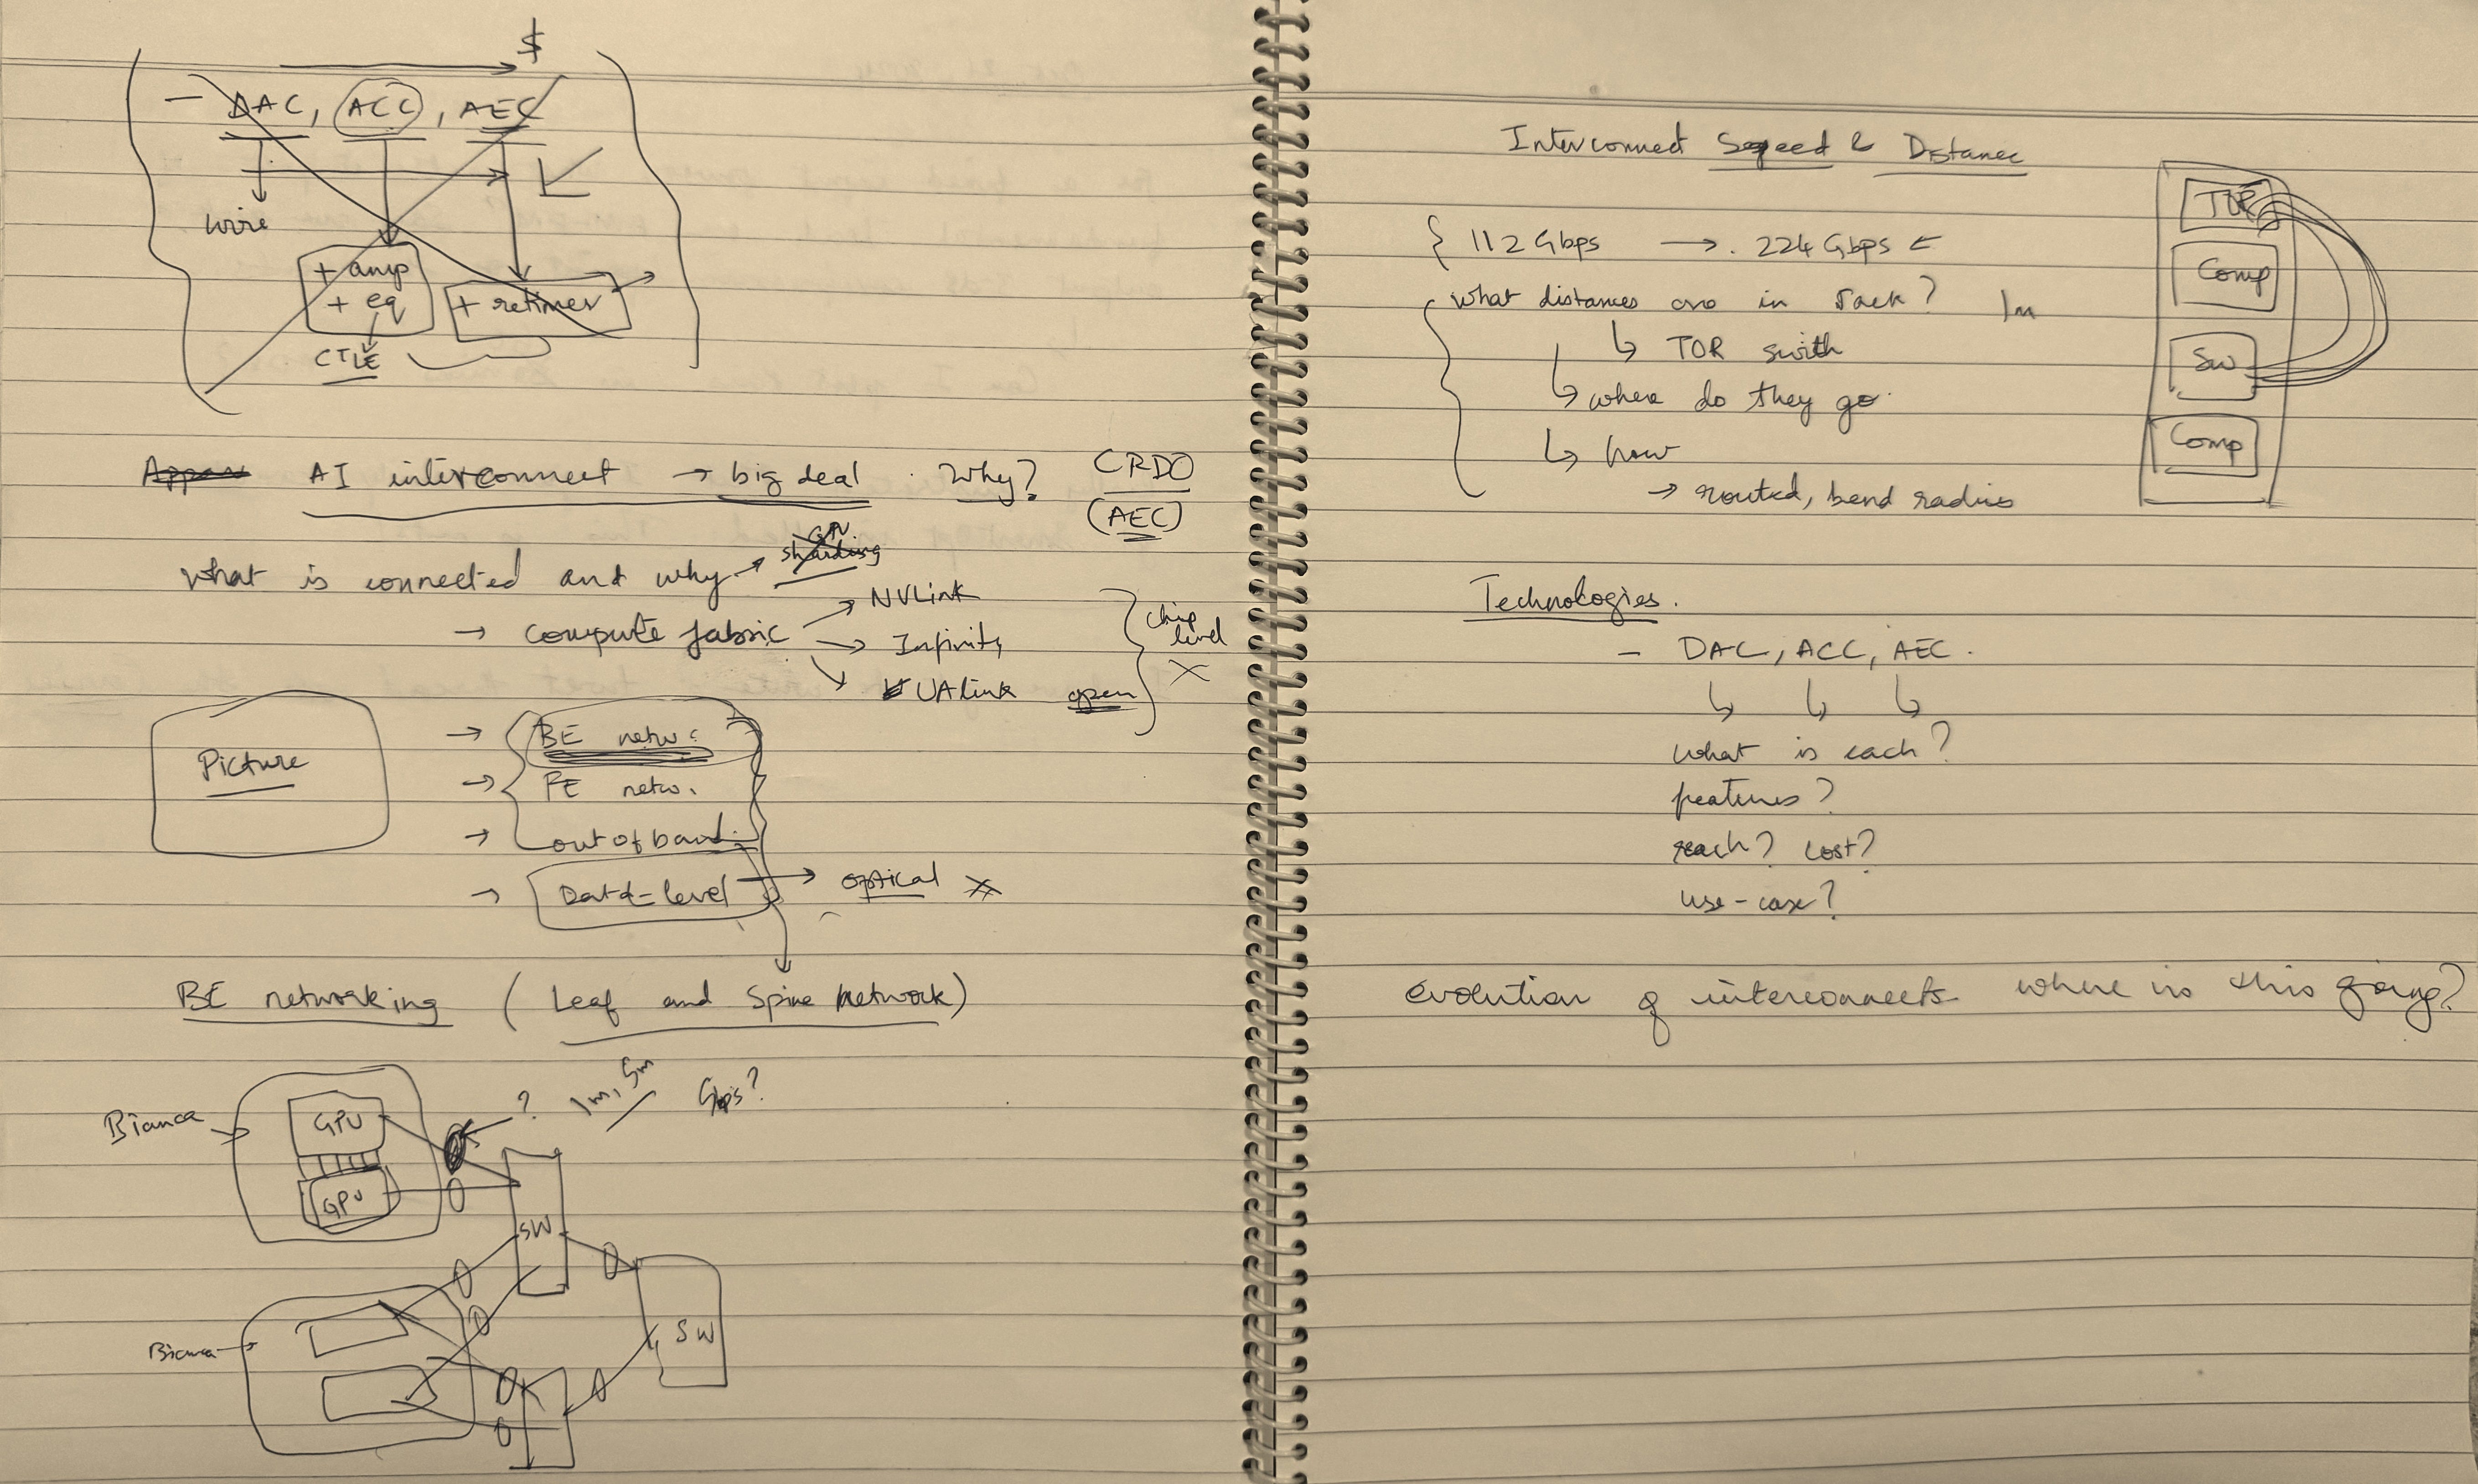 $
- DAC, ACC, AEC
wire
+ amp
+ eq
+ retimer
CTLE
AI interconnect → big deal. Why? CRDO
(AEC)
GPU
sharding
what is connected and why →
→ compute fabric → NVLink
→ Infinity
UALink open
chip
level
X
Picture
→ BE netw.
→ FE netw.
→ out of band.
→ → optical
BE networking (Leaf and Spine Network)
Bianca
GPU
GPU
? 1m, 5m Gbps?
SW
SW
Bianca
Interconnect Speed & Distance
{ 112 Gbps → 224 Gbps ←
what distances are in rack? 1m
↳ TOR swith
↳ where do they go.
↳ how
→ routed, bend radius
TOR
Comp
SW
Comp
Technologies.
- DAC, ACC, AEC.
↳ ↳ ↳
what is each?
features?
reach? cost?
use-case?
evolution of interconnects where is this going?